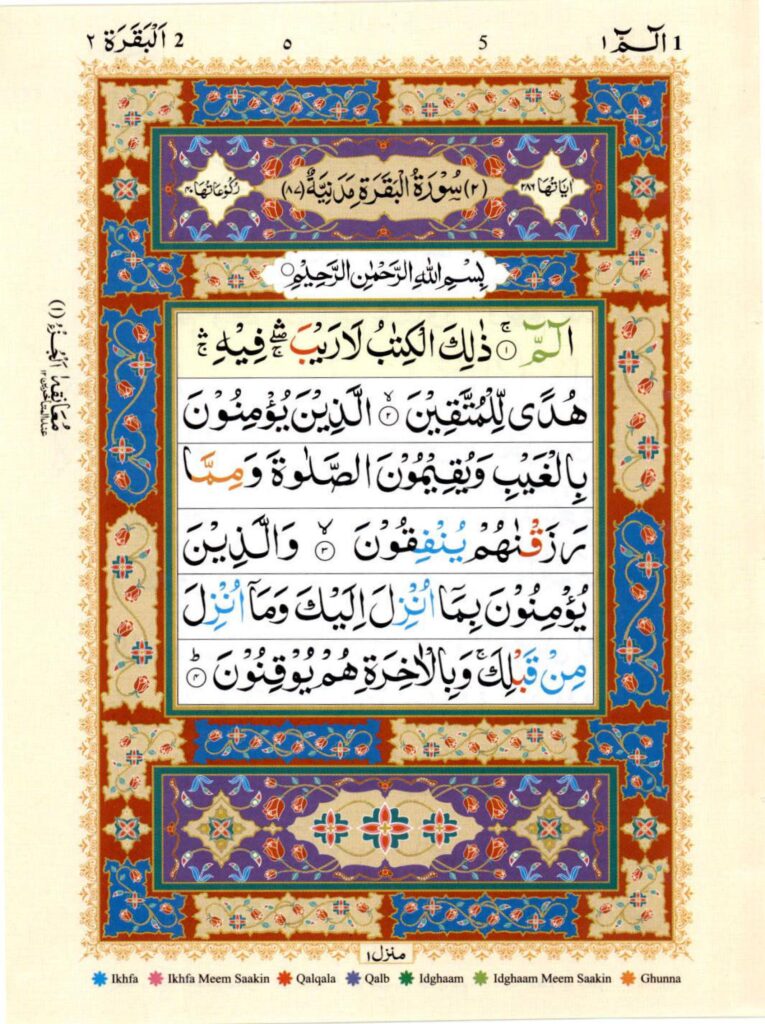 1 الٓمّٓ ١ 5 ٥ 2 اَلْبَقَرَة ٢
اٰيَاتُهَا ٢٨٦ (٢) سُوْرَةُ الْبَقَرَةِ مَدَنِيَّةٌ (٨٧) رُكُوْعَاتُهَا ٤٠
بِسْمِ اللّٰهِ الرَّحْمٰنِ الرَّحِيْمِ
الٓمّٓ ۚ ١ ذٰلِكَ الْكِتٰبُ لَا رَيْبَ ۛۖ فِيْهِ ۛۚ
هُدًى لِّلْمُتَّقِيْنَ ۙ ٢ الَّذِيْنَ يُؤْمِنُوْنَ
بِالْغَيْبِ وَيُقِيْمُوْنَ الصَّلٰوةَ وَمِمَّا
رَزَقْنٰهُمْ يُنْفِقُوْنَ ۙ ٣ وَالَّذِيْنَ
يُؤْمِنُوْنَ بِمَآ اُنْزِلَ اِلَيْكَ وَمَآ اُنْزِلَ
مِنْ قَبْلِكَ ۚ وَبِالْاٰخِرَةِ هُمْ يُوْقِنُوْنَ ؕ ٤
مُعَانَقَه اَلْجُزْءُ (١)
منزل ١
Ikhfa Ikhfa Meem Saakin Qalqala Qalb Idghaam Idghaam Meem Saakin Ghunna